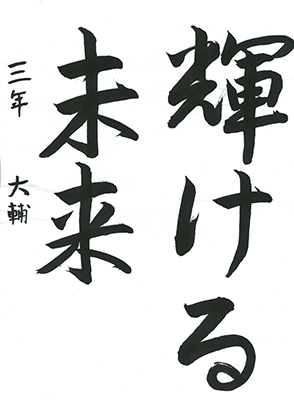 輝ける
未来
三年 大輔